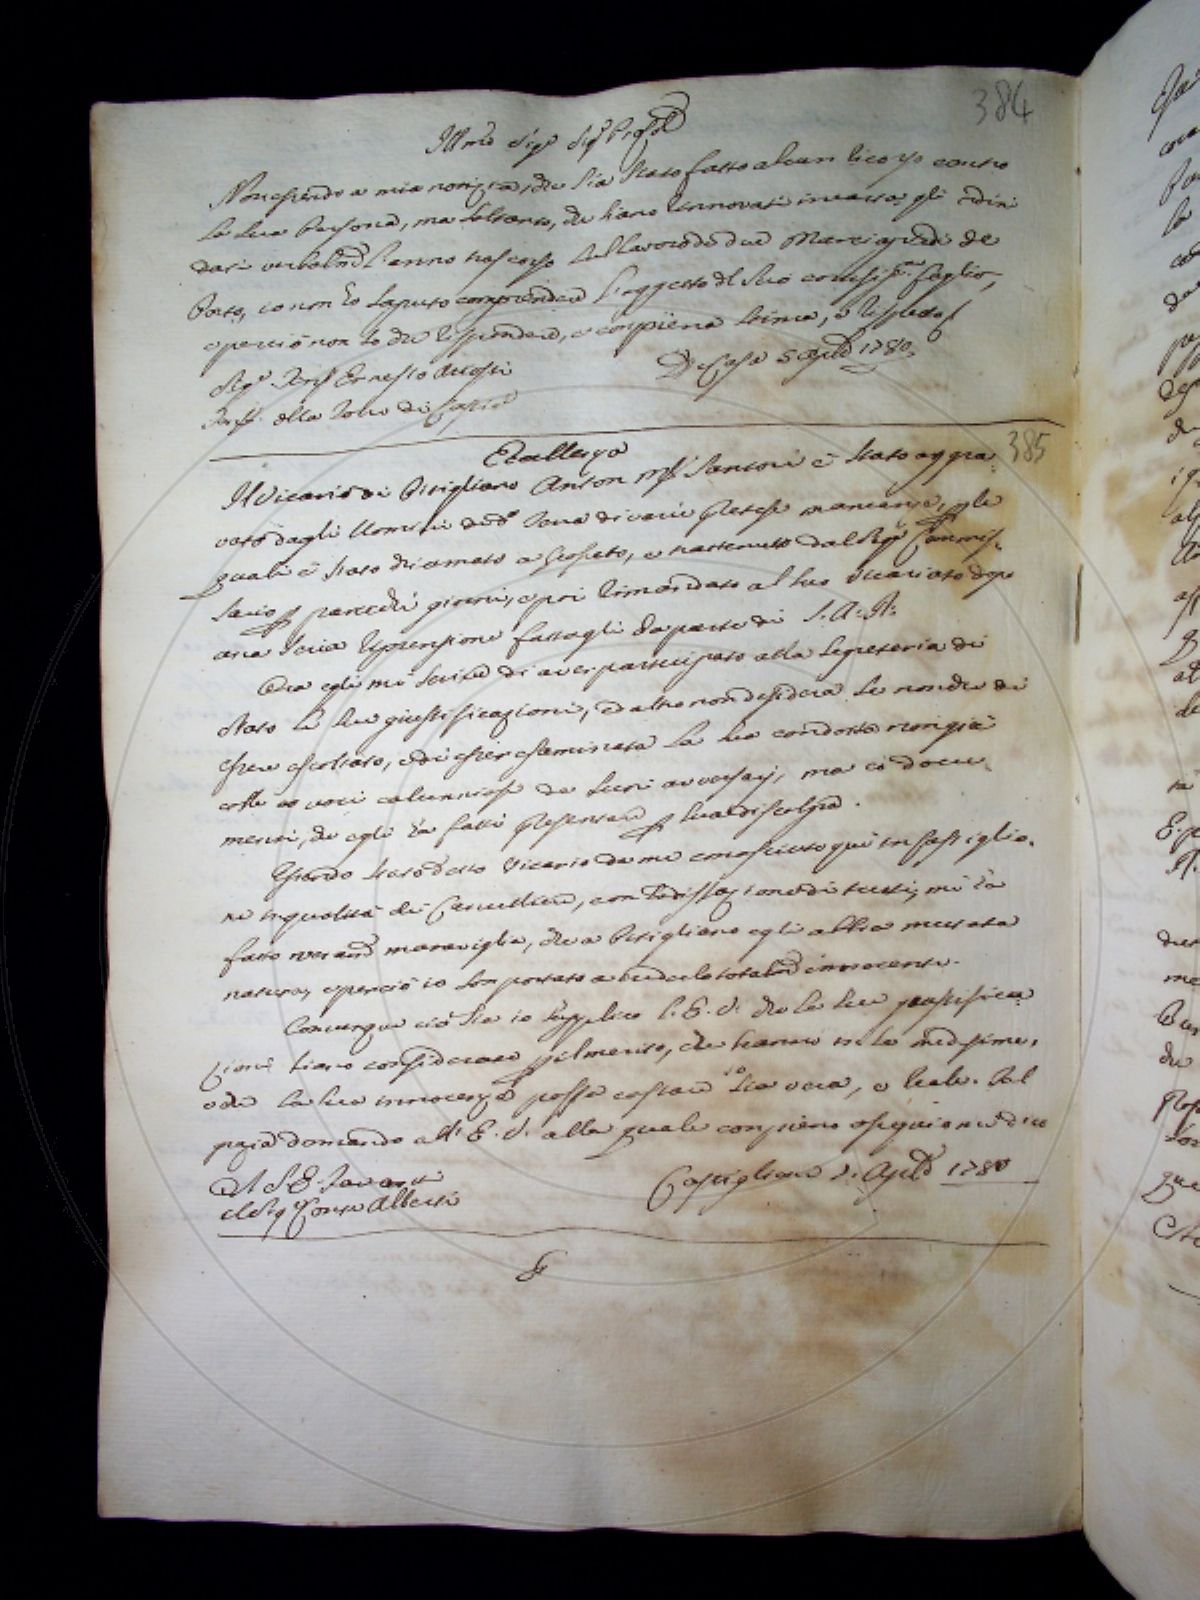 384
Ill.mo Sig.r Sig.r
Non essendo a mia notizia, che sia stato fatto alcun ricorso contro
la sua Persona, ma soltanto, che siano rinnovati in causa gli ordini
dati verbalm.e l'anno trascorso sul lavoro de due Marciapiedi de
Porto, io non ho saputo comprendere l'oggetto del suo foglio,
e perciò non so che rispondere, e con piena stima, e rispetto
Sig.r Ernesto
della Torre di
Di Casa 5 Aple 1780
385
Eccellenza
Il Vicario di Pitigliano Anton M.a Santoni è stato aggra
vato dagli Uomini di d.a Terra di varie pretese mancanze, p le
quali è stato chiamato a Grosseto, e trattenuto dal Sig.r Commis=
sario p parecchi giorni, e poi rimandato al suo Vicariato dopo
una seria riprensione fattagli da parte di S. A. R.
Ora egli mi scrive di aver partecipato alla Segreteria di
Stato le sue giustificazioni, ed altro non desidera se non che di
esser ascoltato, e di esser esaminata la sua condotta non già
colle voci calunniose de suoi avversarj, ma co docu=
menti, che egli ha fatti presentare p sua discolpa.
Essendo stato detto Vicario da me conosciuto qui in Castiglio=
ne in qualità di Cancelliere, con sodisfazione di tutti, mi ha
fatto veram.e maraviglia, che a Pitigliano egli abbia mutata
natura, e perciò io son portato a crederlo totalm.e innocente.
Comunque ciò sia io supplico l'E. V. che le sue giustifica=
zioni siano considerate pel merito, che hanno in se medesime,
e che la sua innocenza possa costare se sia vera, e reale. Tal
grazia domando all'E. V. alla quale con pieno ossequio mi dico
A S. E. Padrone
il Sig.r Conte Alberti
Castiglione 7. Aple 1780